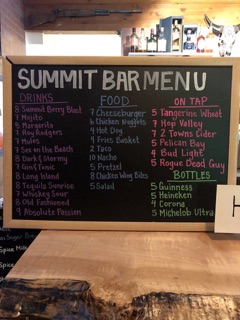 SUMMIT BAR MENU
DRINKS
8 Summit Berry Blast
7 Mojito
5 Margarita
4 Roy Rodgers
7 Mules
8 Sex on the Beach
8 Dark & Stormy
7 Gin & Tonic
8 Long Island
8 Tequila Sunrise
7 Whiskey Sour
8 Old Fashioned
4 Absolute Passion
FOOD
7 Cheeseburger
6 Chicken Nuggets
4 Hot Dog
4 Fries Basket
2 Taco
10 Nacho
5 Pretzel
8 Chicken Wing Bites
5 Salad
ON TAP
5 Tangerine Wheat
7 Hop Valley
7 2 Towns Cider
5 Pelican Bay
4 Bud Light
5 Rogue Dead Guy
BOTTLES
5 Guinness
5 Heineken
4 Corona
5 Michelob Ultra
H
Spice